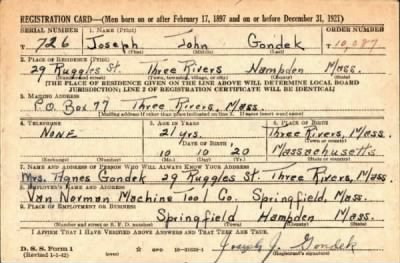 REGISTRATION CARD—(Men born on or after February 17, 1897 and on or before December 31, 1921)
SERIAL NUMBER 1. NAME (Print) ORDER NUMBER
T 726 Joseph John Gondek T10,087
(First) (Middle) (Last)
2. PLACE OF RESIDENCE (Print)
29 Ruggles St. Three Rivers Hampden Mass.
(Number and street) (Town, township, village, or city) (County) (State)
[THE PLACE OF RESIDENCE GIVEN ON THE LINE ABOVE WILL DETERMINE LOCAL BOARD
JURISDICTION; LINE 2 OF REGISTRATION CERTIFICATE WILL BE IDENTICAL]
3. MAILING ADDRESS
P.O. Box 77 Three Rivers, Mass.
[Mailing address if other than place indicated on line 2. If same insert word same]
4. TELEPHONE 5. AGE IN YEARS 6. PLACE OF BIRTH
NONE 21 yrs. Three Rivers, Mass.
DATE OF BIRTH (Town or county)
10 10 20 Massachusetts
(Exchange) (Number) (Mo.) (Day) (Yr.) (State or country)
7. NAME AND ADDRESS OF PERSON WHO WILL ALWAYS KNOW YOUR ADDRESS
Mrs. Agnes Gondek 29 Ruggles St. Three Rivers, Mass.
8. EMPLOYER'S NAME AND ADDRESS
Van Norman Machine Tool Co. Springfield, Mass.
9. PLACE OF EMPLOYMENT OR BUSINESS
Springfield Hampden Mass.
(Number and street or R. F. D. number) (Town) (County) (State)
I AFFIRM THAT I HAVE VERIFIED ABOVE ANSWERS AND THAT THEY ARE TRUE.
D. S. S. Form 1
(Revised 1-1-42) GPO 16-21630-1 Joseph J. Gondek
(Registrant's signature)